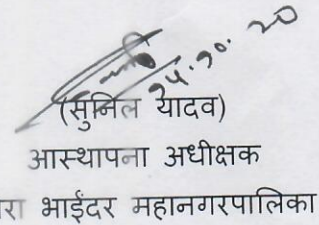 (सुनिल यादव)
आस्थापना अधीक्षक
रा भाईंदर महानगरपालिका